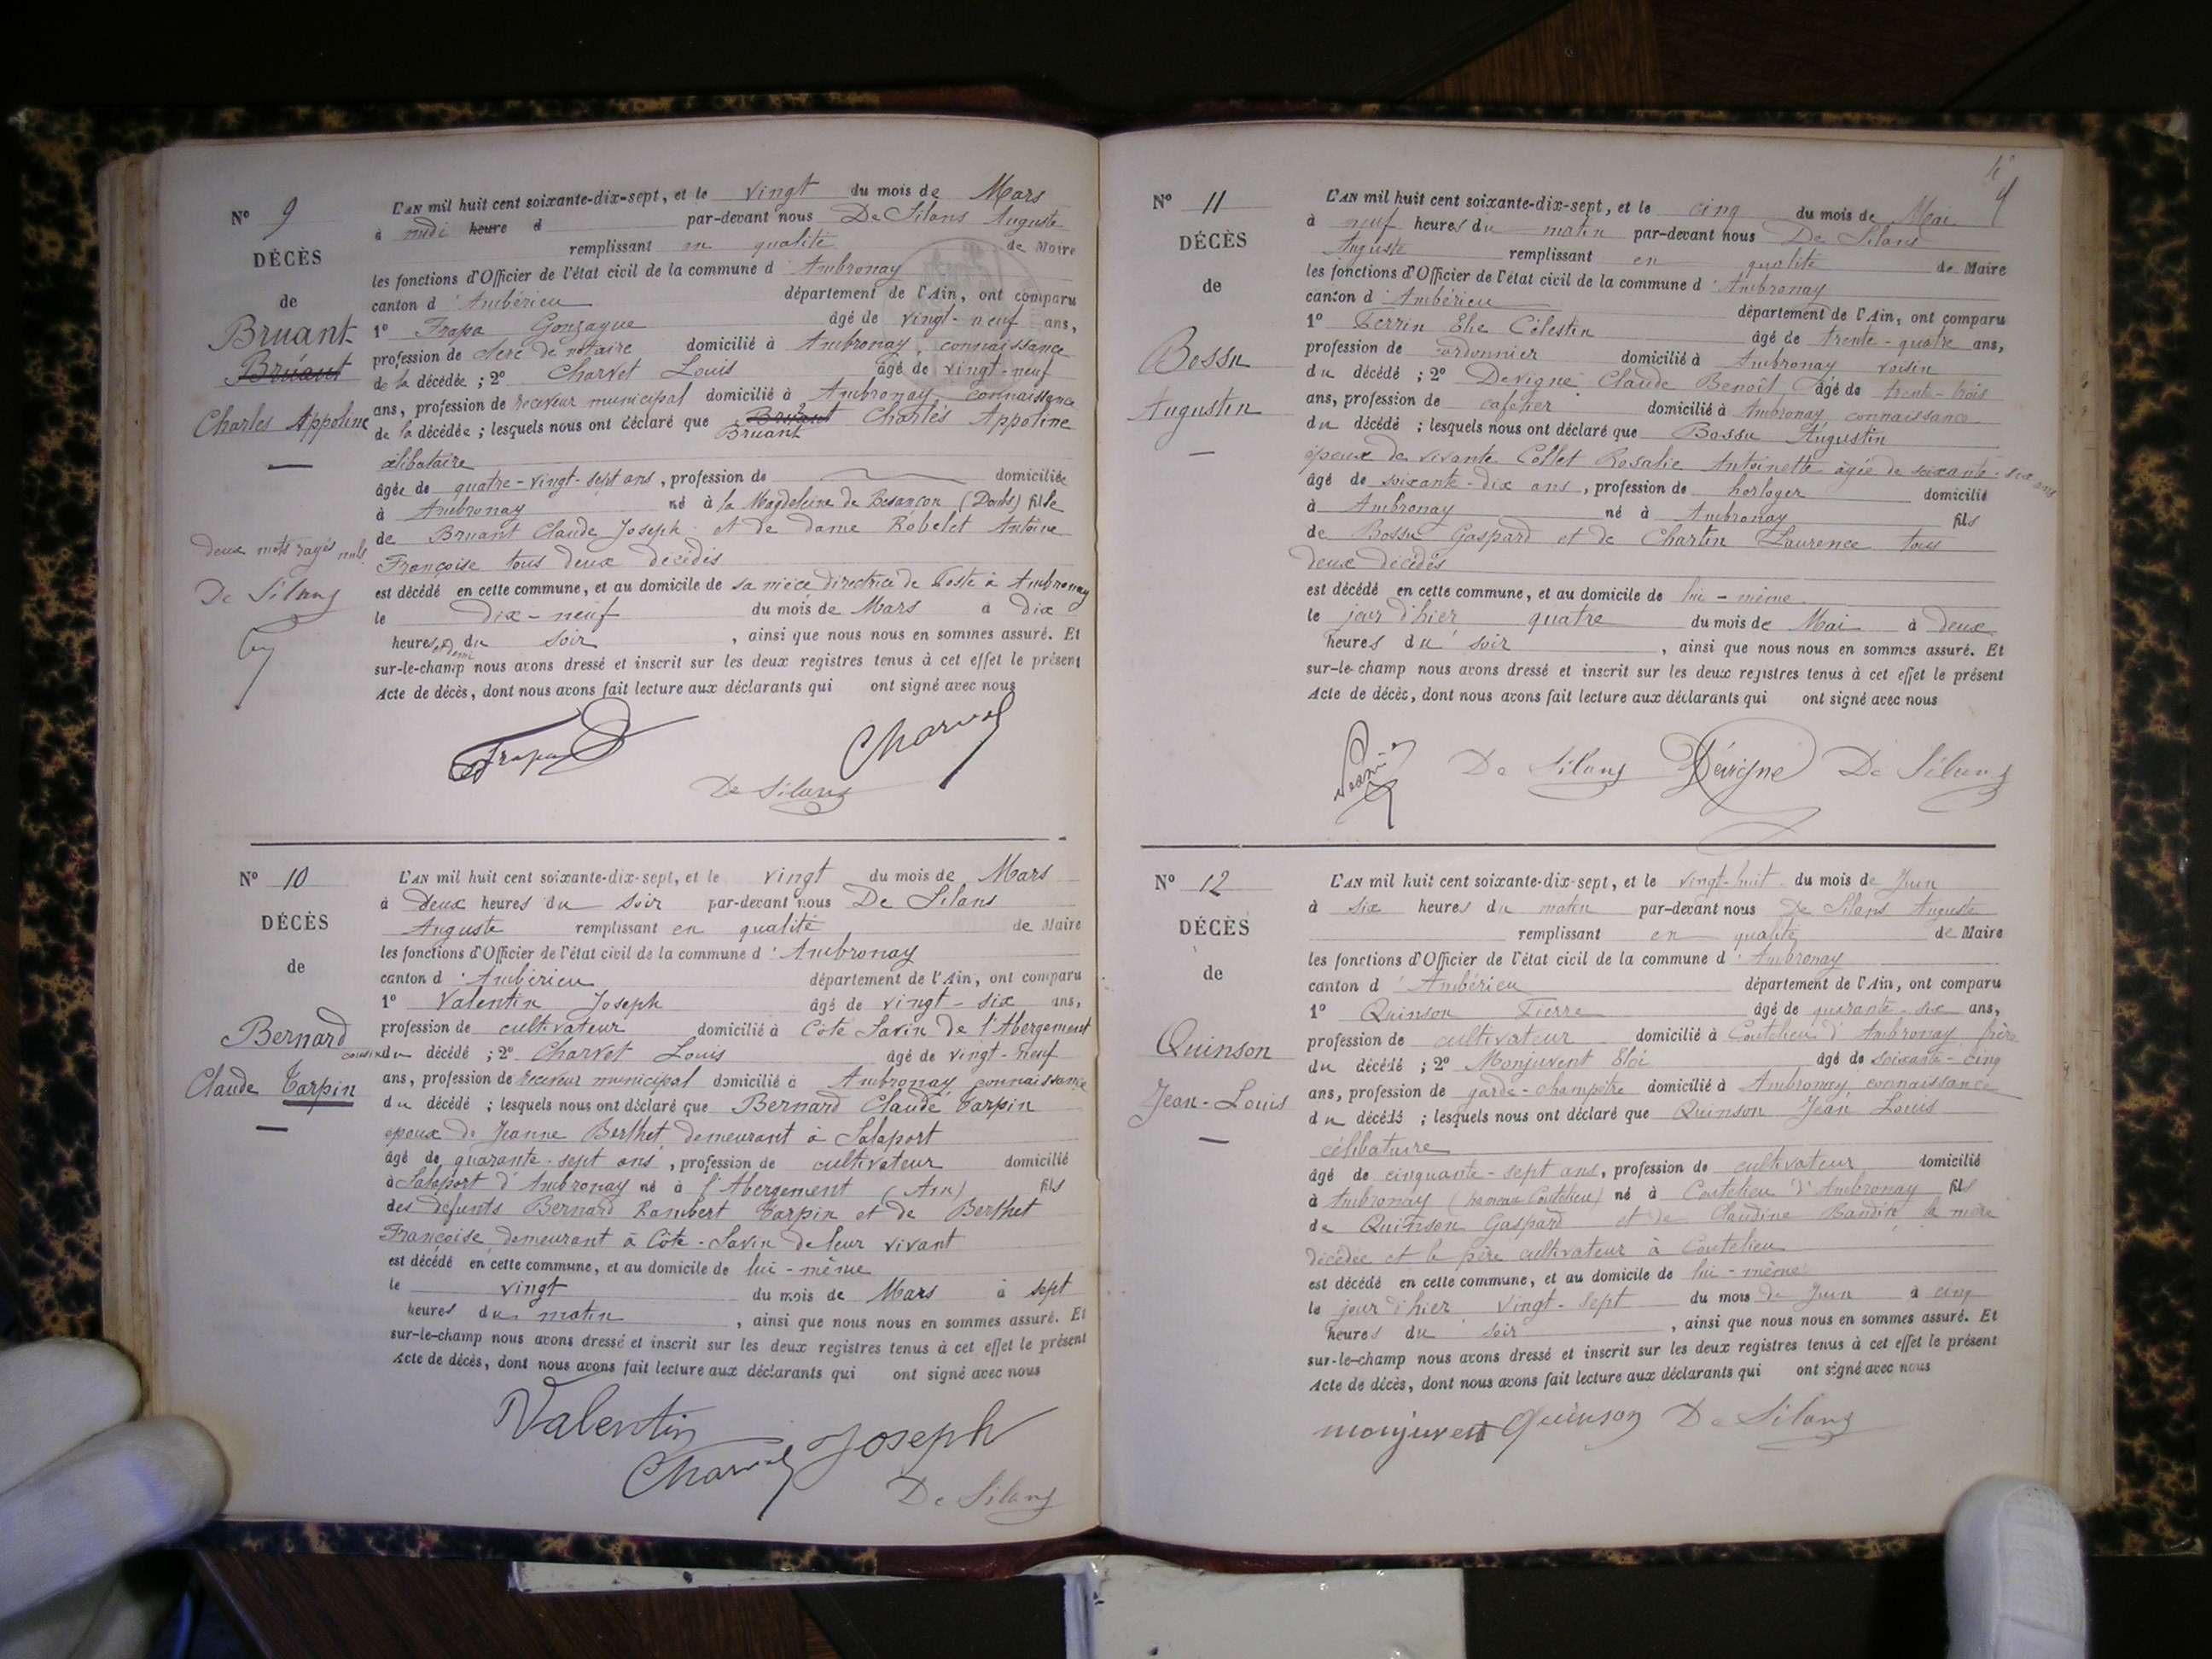 N° 9
DÉCÈS
de
Bruant
Bruant
Charles Appoline
deux mots rayés nuls
De Silans
L'AN mil huit cent soixante-dix-sept, et le vingt du mois de Mars
à midi heure d par-devant nous De Silans Auguste
remplissant en qualité de Maire
les fonctions d'Officier de l'état civil de la commune d'Ambronay
canton d'Ambérieu département de l'Ain, ont comparu
1° Frapa Gonzague âgé de vingt-neuf ans,
profession de clerc de notaire domicilié à Ambronay, connaissance
de la décédée ; 2° Charvet Louis âgé de vingt-neuf
ans, profession de receveur municipal domicilié à Ambronay, connaissance
de la décédée ; lesquels nous ont déclaré que Bruant Charles Appoline
Bruant
célibataire
âgée de quatre-vingt-sept ans, profession de domiciliée
à Ambronay né à la Magdeleine de Besançon (Doubs) fille
de Bruant Claude Joseph et de dame Robelet Antoine
Françoise tous deux décédés
est décédé en cette commune, et au domicile de sa nièce directrice de Poste à Ambronay
le dix-neuf du mois de Mars à dix
heures et demi du soir, ainsi que nous nous en sommes assuré. Et
sur-le-champ nous avons dressé et inscrit sur les deux registres tenus à cet effet le présent
Acte de décès, dont nous avons fait lecture aux déclarants qui ont signé avec nous
Frapa Charvet
De Silans
N° 10
DÉCÈS
de
Bernard
Claude Tarpin
L'AN mil huit cent soixante-dix-sept, et le vingt du mois de Mars
à deux heures du soir par-devant nous De Silans
Auguste remplissant en qualité de Maire
les fonctions d'Officier de l'état civil de la commune d'Ambronay
canton d'Ambérieu département de l'Ain, ont comparu
1° Valentin Joseph âgé de vingt-six ans,
profession de cultivateur domicilié à Côte Savin de l'Abergement
cousin du décédé ; 2° Charvet Louis âgé de vingt-neuf
ans, profession de receveur municipal domicilié à Ambronay connaissance
du décédé ; lesquels nous ont déclaré que Bernard Claude Tarpin
époux de Jeanne Berthet demeurant à Salaport
âgé de quarante-sept ans, profession de cultivateur domicilié
à Salaport d'Ambronay né à l'Abergement (Ain) fils
des défunts Bernard Rambert Tarpin et de Berthet
Françoise demeurant à Côte-Savin de leur vivant
est décédé en cette commune, et au domicile de lui-même
le vingt du mois de Mars à sept
heures du matin, ainsi que nous nous en sommes assuré. Et
sur-le-champ nous avons dressé et inscrit sur les deux registres tenus à cet effet le présent
Acte de décès, dont nous avons fait lecture aux déclarants qui ont signé avec nous
Valentin
Charvet Joseph
De Silans
4
N° 11
DÉCÈS
de
Bossu
Augustin
L'AN mil huit cent soixante-dix-sept, et le cinq du mois de Mai
à neuf heures du matin par-devant nous De Silans
Auguste remplissant en qualité de Maire
les fonctions d'Officier de l'état civil de la commune d'Ambronay
canton d'Ambérieu département de l'Ain, ont comparu
1° Perrin Elie Célestin âgé de trente-quatre ans,
profession de cordonnier domicilié à Ambronay voisin
du décédé ; 2° Devigne Claude Benoît âgé de trente-trois
ans, profession de cafetier domicilié à Ambronay connaissance
du décédé ; lesquels nous ont déclaré que Bossu Augustin
époux de vivante Collet Rosalie Antoinette âgée de soixante-six ans
âgé de soixante-dix ans, profession de horloger domicilié
à Ambronay né à Ambronay fils
de Bossu Gaspard et de Charlin Laurence tous
deux décédés
est décédé en cette commune, et au domicile de lui-même
le jour d'hier quatre du mois de Mai à deux
heures du soir, ainsi que nous nous en sommes assuré. Et
sur-le-champ nous avons dressé et inscrit sur les deux registres tenus à cet effet le présent
Acte de décès, dont nous avons fait lecture aux déclarants qui ont signé avec nous
De Silans Dévigne De Silans
N° 12
DÉCÈS
de
Quinson
Jean-Louis
L'AN mil huit cent soixante-dix-sept, et le vingt-huit du mois de Juin
à six heures du matin par-devant nous De Silans Auguste
remplissant en qualité de Maire
les fonctions d'Officier de l'état civil de la commune d'Ambronay
canton d'Ambérieu département de l'Ain, ont comparu
1° Quinson Pierre âgé de quarante-six ans,
profession de cultivateur domicilié à Coutelieu d'Ambronay frère
du décédé ; 2° Monjuvent Eloi âgé de soixante-cinq
ans, profession de garde-champêtre domicilié à Ambronay connaissance
du décédé ; lesquels nous ont déclaré que Quinson Jean Louis
célibataire
âgé de cinquante-sept ans, profession de cultivateur domicilié
à Ambronay (hameau Coutelieu) né à Coutelieu d'Ambronay fils
de Quinson Gaspard et de Claudine Bandin la mère
décédée et le père cultivateur à Coutelieu
est décédé en cette commune, et au domicile de lui-même
le jour d'hier vingt-sept du mois de Juin à cinq
heures du soir, ainsi que nous nous en sommes assuré. Et
sur-le-champ nous avons dressé et inscrit sur les deux registres tenus à cet effet le présent
Acte de décès, dont nous avons fait lecture aux déclarants qui ont signé avec nous
monjuvent Quinson De Silans